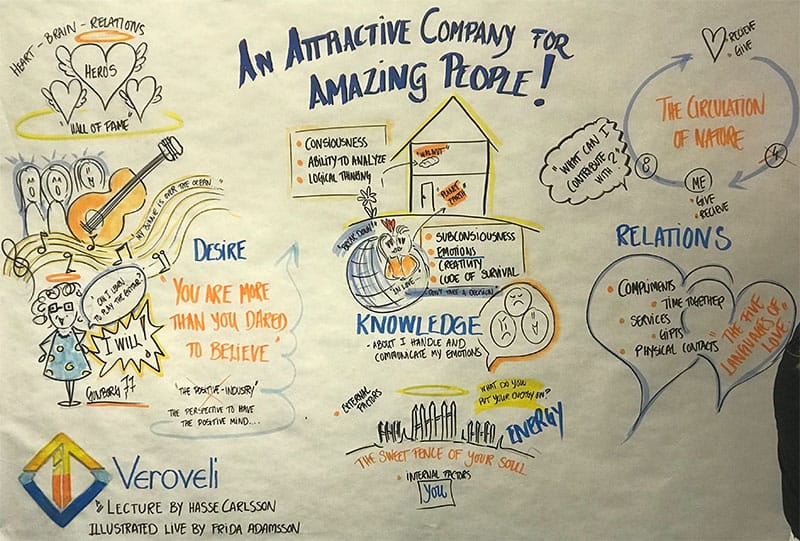 AN ATTRACTIVE COMPANY FOR
AMAZING PEOPLE!
HEART - BRAIN - RELATIONS
HEROS
"HALL OF FAME"
MY SNARE IS OVER THE OCEAN
DESIRE
"CAN I LEARN
TO PLAY THE GUITAR?"
I WILL!
GUNBORG 77
"YOU ARE MORE
THAN YOU DARED
TO BELIEVE"
"THE POSITIVE-INDUSTRY"
THE PERSPECTIVE TO HAVE
THE POSITIVE MIND....
CONSIOUSNESS
ABILITY TO ANALYZE
LOGICAL THINKING
"WALNUT"
"PLANET
"BREAK DOWN"
IN LOVE
SUBCONSIOUSNESS
EMOTIONS
CREATIVITY
CODE OF SURVIVAL
"DON'T TAKE A DECISION"
KNOWLEDGE
- ABOUT I HANDLE AND
COMMUNICATE MY EMOTIONS
EXTERNAL
FACTORS
WHAT DO YOU
PUT YOUR ENERGY ON?
ENERGY
THE SWEET FENCE OF YOUR SOUL
INTERNAL FACTORS
YOU
RECIEVE
GIVE
THE CIRCULATION
OF NATURE
"WHAT CAN I
CONTRIBUTE
WITH?"
8
4
ME
GIVE
RECIEVE
RELATIONS
COMPLIMENTS
TIME TOGETHER
SERVICES
GIFTS
PHYSICAL CONTACTS
"THE FIVE
LANGUAGES OF
LOVE"
Veroveli
LECTURE BY HASSE CARLSSON
ILLUSTRATED LIVE BY FRIDA ADAMSSON